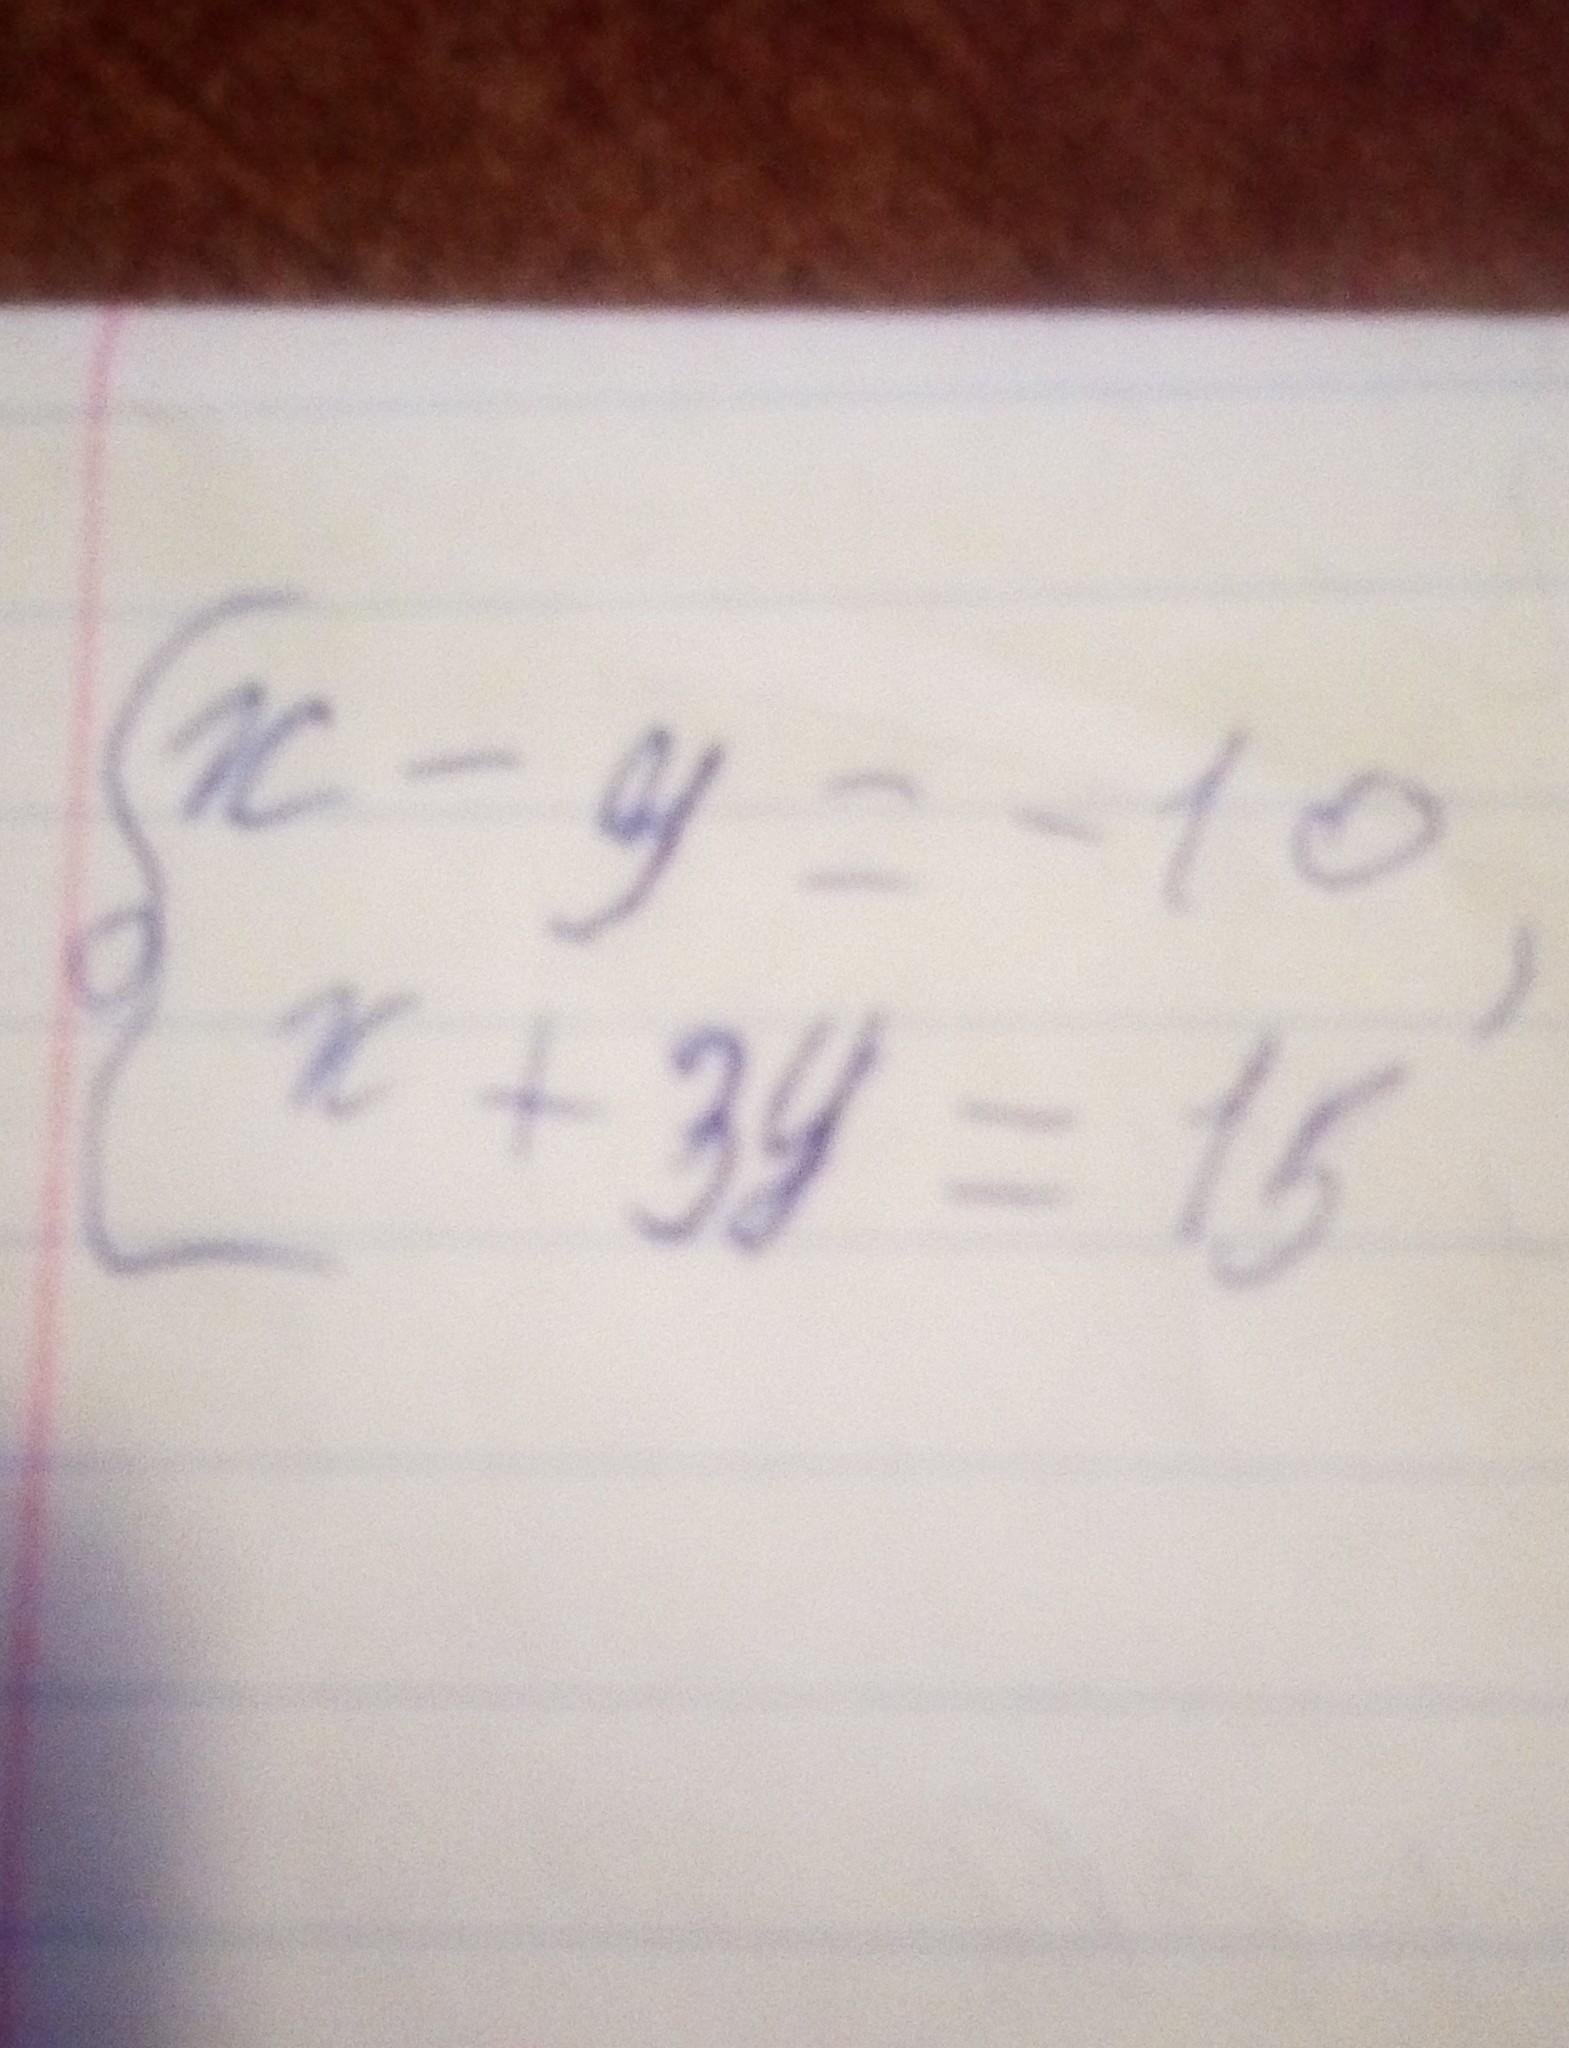 x - y = -10,
x + 3y = 15